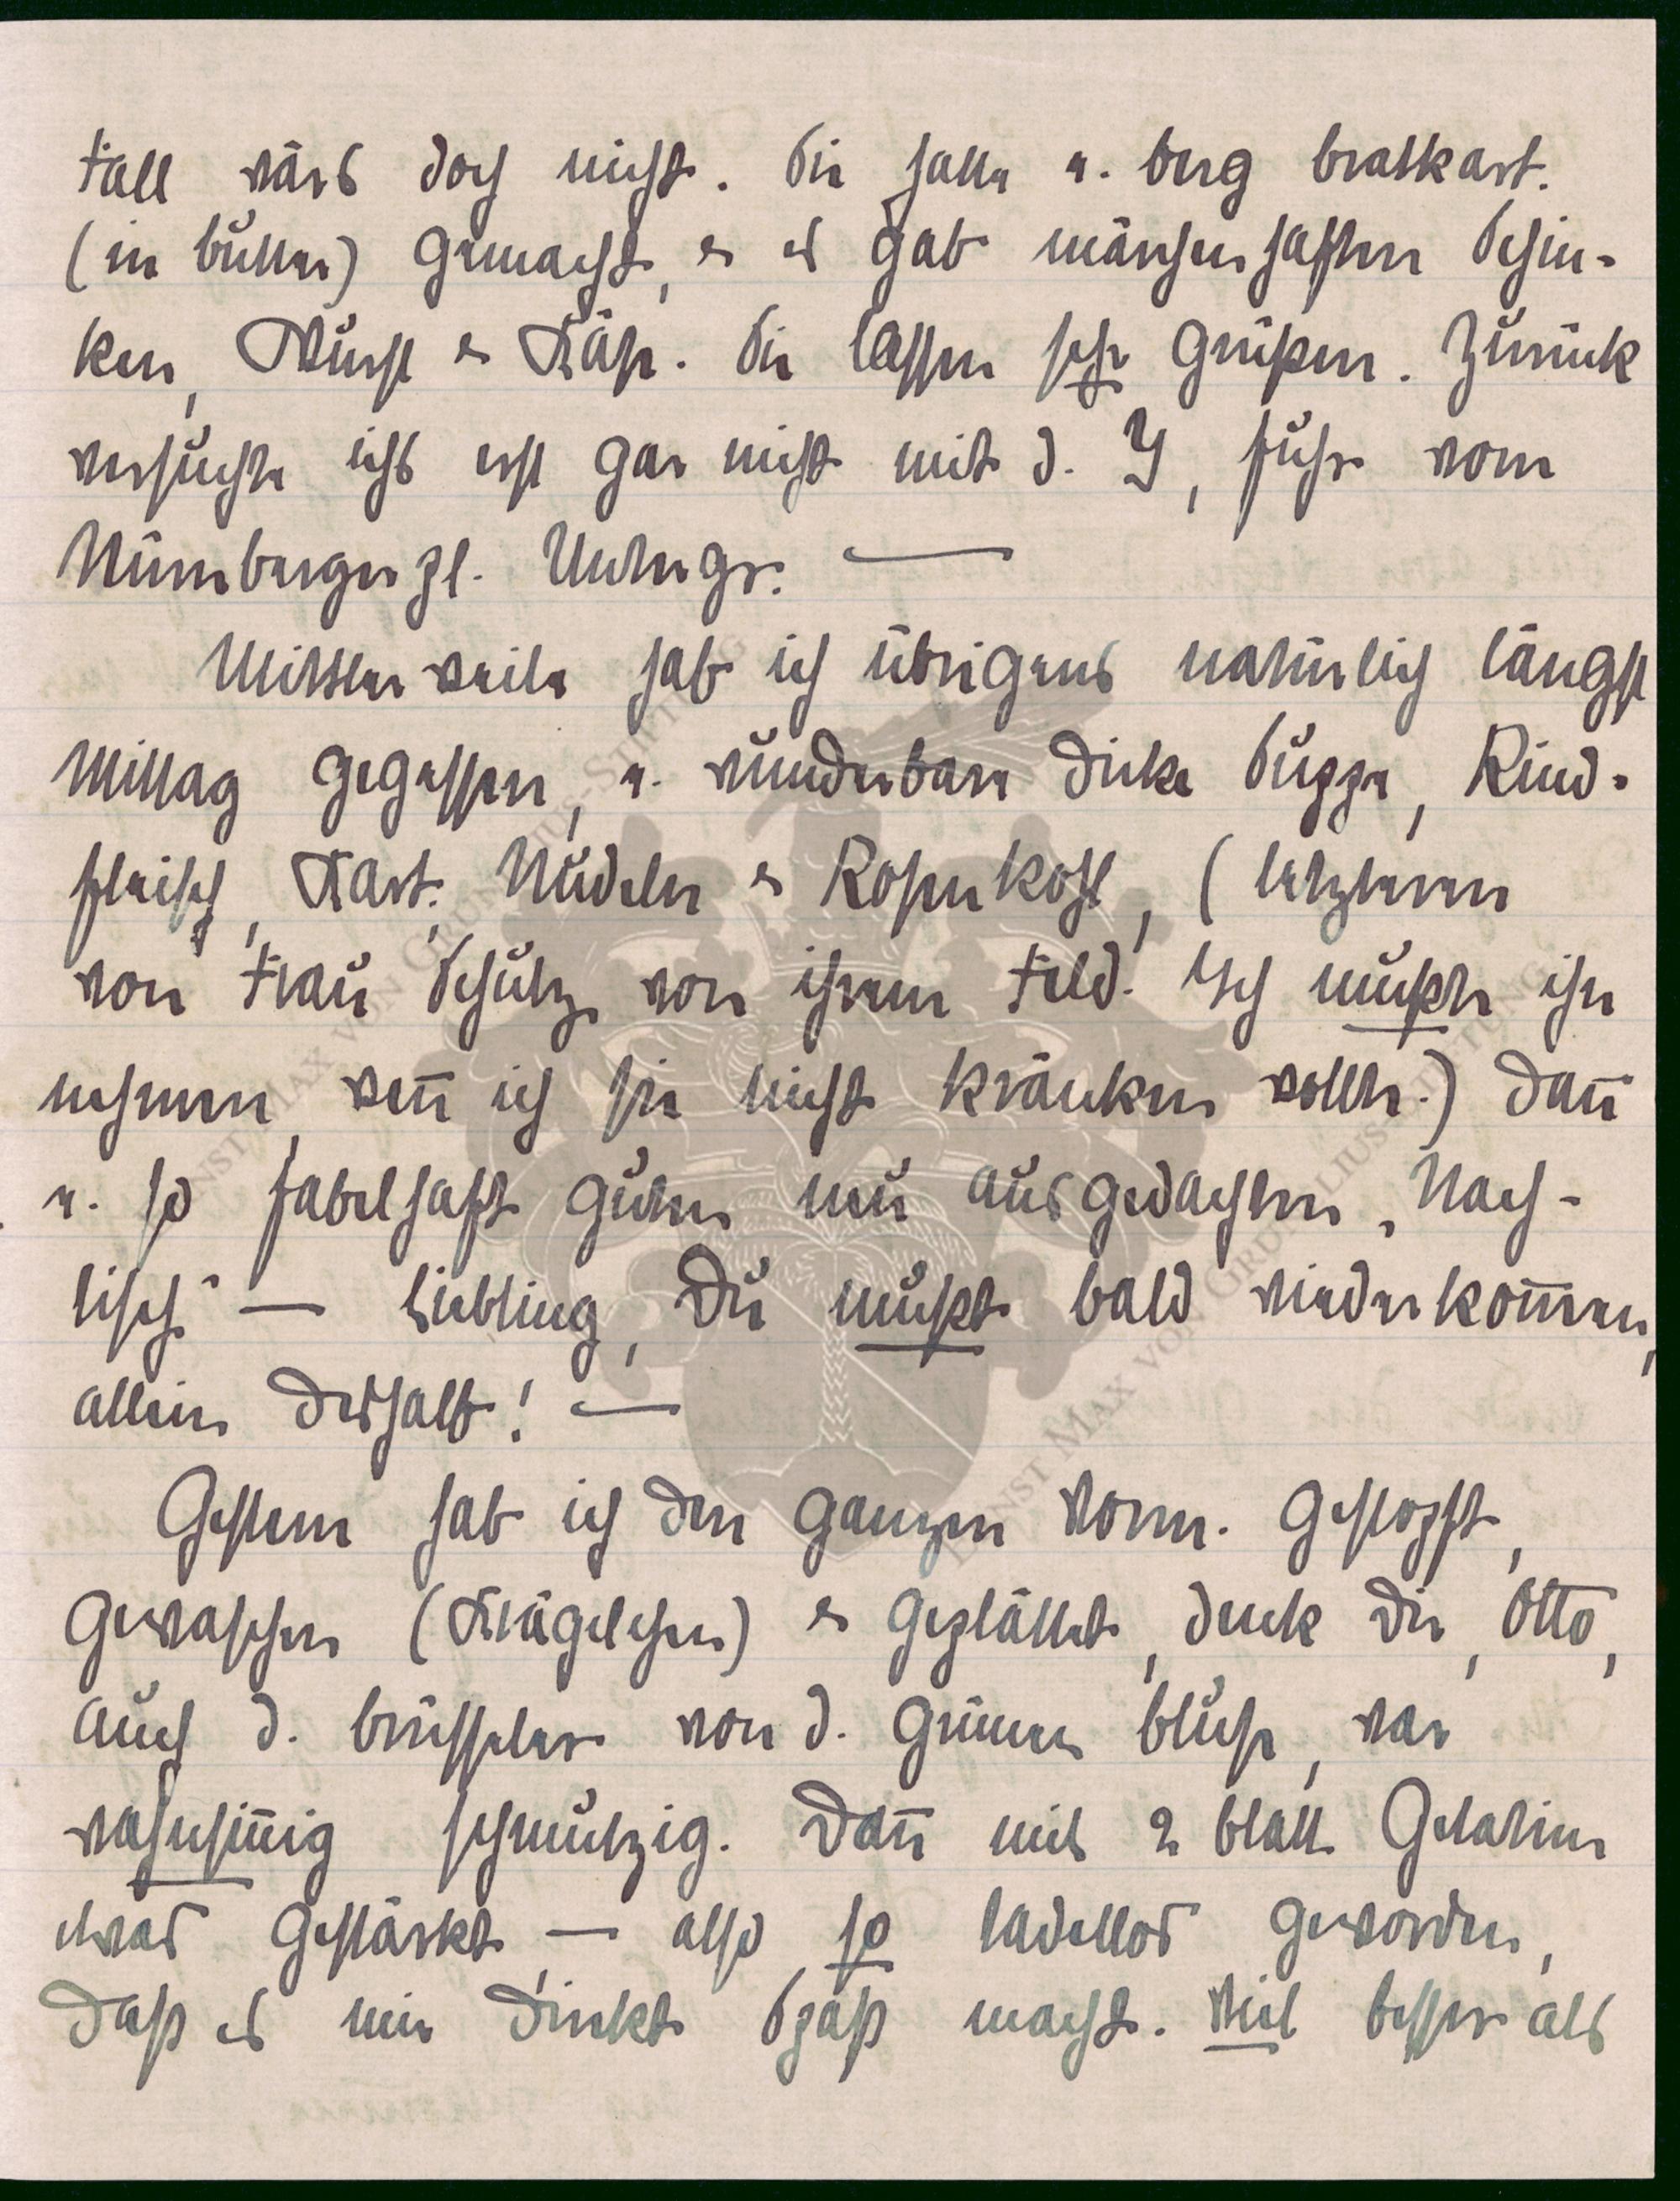 Fall wärs doch nicht. Sie hatte e. Berg Bratkart.
(in Butter) gemacht, & es gab märchenhaften Schin-
ken, Wurst & Käse. Sie lassen sehr grüßen. Zurück
versuchte ichs erst gar nicht mit d. Y, fuhr vom
Nürnbergerpl. Untergr. —
Mittlerweile hab ich übrigens natürlich längst
Mittag gegessen, e. wunderbare dicke Suppe, Rind-
fleisch, Kart. Nudeln & Rosenkohl, (letzteren
von Frau Schulz von ihrem Feld. Ich mußte ihn
nehmen, wen̄ ich sie nicht kränken wollte.) Dan̄
e. so fabelhaft guten neu ausgedachten „Nach-
tisch" — Liebling, Du mußt bald wiederkom̄en,
allein deshalb! —
Gestern hab ich den ganzen Vorm. gestopft,
gewaschen (Krägelchen) & geplättet, denk Dir, Otto,
auch d. Brüsseler von d. grünen Bluse, war
wahnsin̄ig schmutzig. Dan̄ mit 2 Blatt Gelatine
etwas gestärkt — also so tadellos geworden,
daß es mir direkt Spaß macht. Viel besser als